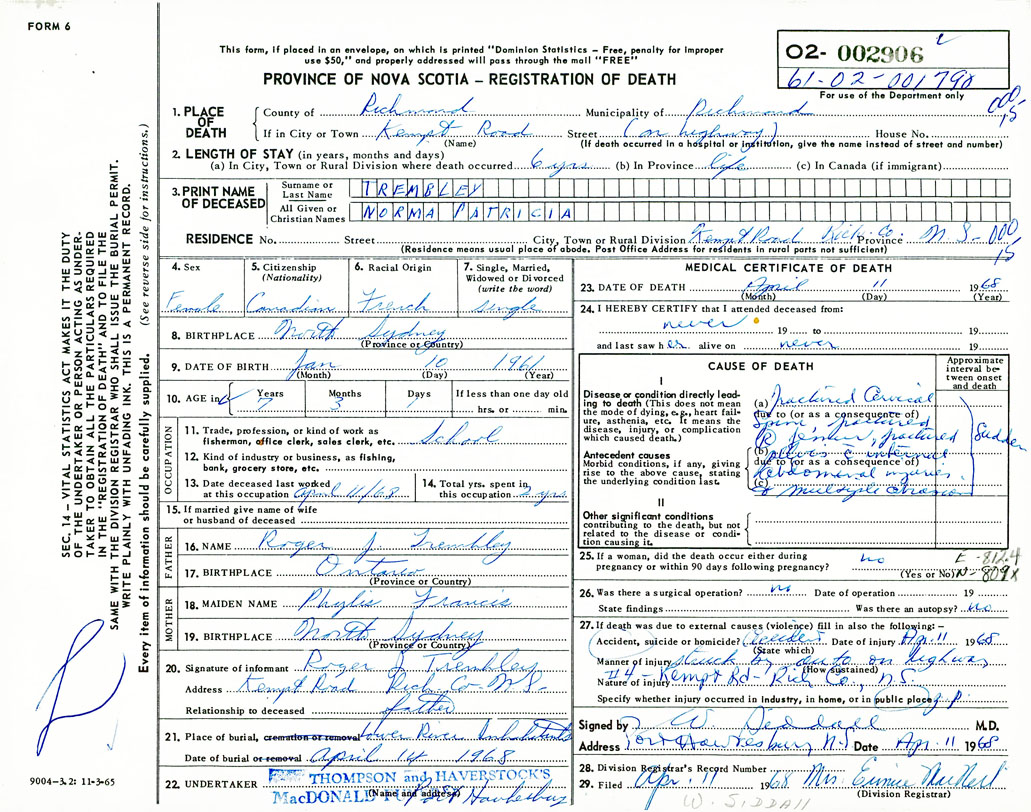 FORM 6
This form, if placed in an envelope, on which is printed "Dominion Statistics – Free, penalty for improper
use $50," and properly addressed will pass through the mail "FREE"
PROVINCE OF NOVA SCOTIA – REGISTRATION OF DEATH
02- 002906
61-02-001798
For use of the Department only
SEC. 14 – VITAL STATISTICS ACT MAKES IT THE DUTY
OF THE UNDERTAKER OR PERSON ACTING AS UNDER-
TAKER TO OBTAIN ALL THE PARTICULARS REQUIRED
IN THE "REGISTRATION OF DEATH" AND TO FILE THE
SAME WITH THE DIVISION REGISTRAR WHO SHALL ISSUE THE BURIAL PERMIT.
WRITE PLAINLY WITH UNFADING INK. THIS IS A PERMANENT RECORD.
Every item of information should be carefully supplied. (See reverse side for instructions.)
1. PLACE OF DEATH County of Richmond Municipality of Richmond
If in City or Town Kempt Road Street (on highway) House No.
(Name) (If death occurred in a hospital or institution, give the name instead of street and number)
2. LENGTH OF STAY (in years, months and days)
(a) In City, Town or Rural Division where death occurred 6 yrs (b) In Province life (c) In Canada (if immigrant)
3. PRINT NAME OF DECEASED Surname or Last Name TREMBLEY
All Given or Christian Names NORMA PATRICIA
RESIDENCE No. Street City, Town or Rural Division Kempt Road Rich. Co. Province N S - 000
(Residence means usual place of abode. Post Office Address for residents in rural parts not sufficient) 15
4. Sex 5. Citizenship (Nationality) 6. Racial Origin 7. Single, Married, Widowed or Divorced (write the word)
Female Canadian French single
8. BIRTHPLACE North Sydney
(Province or Country)
9. DATE OF BIRTH Jan 10 1961
(Month) (Day) (Year)
10. AGE in Years Months Days If less than one day old
7 3 1 hrs. or min.
OCCUPATION
11. Trade, profession, or kind of work as
fishermen, office clerk, sales clerk, etc. School
12. Kind of industry or business, as fishing,
bank, grocery store, etc.
13. Date deceased last worked
at this occupation April 11/68
14. Total yrs. spent in
this occupation 2 yrs
15. If married give name of wife
or husband of deceased
FATHER
16. NAME Roger J. Trembley
17. BIRTHPLACE Ontario
(Province or Country)
MOTHER
18. MAIDEN NAME Phylis Francis
19. BIRTHPLACE North Sydney
(Province or Country)
20. Signature of informant Roger J Trembley
Address Kempt Road Rich Co - N.S-
Relationship to deceased father
21. Place of burial, cremation or removal Lower River Inhabitants
Date of burial or removal April 14 1968
22. UNDERTAKER THOMPSON and HAVERSTOCK'S
(Name and address)
MacDONALD Port Hawkesbury
MEDICAL CERTIFICATE OF DEATH
23. DATE OF DEATH April 11 1968
(Month) (Day) (Year)
24. I HEREBY CERTIFY that I attended deceased from:
never 19 to 19
and last saw her alive on never 19
CAUSE OF DEATH
Approximate interval between onset and death
I
Disease or condition directly leading to death (This does not mean the mode of dying, e.g., heart failure, asthenia, etc. It means the disease, injury, or complication which caused death.)
(a) fractured Cervical
due to (or as a consequence of)
Spine, fractured
(R) femur, fractured
Sudden
Antecedent causes
Morbid conditions, if any, giving rise to the above cause, stating the underlying condition last.
(b) pelvis & internal
due to (or as a consequence of)
abdominal injuries
(c) & multiple
II
Other significant conditions
contributing to the death, but not related to the disease or condition causing it.
25. If a woman, did the death occur either during
pregnancy or within 90 days following pregnancy? no
(Yes or No)
E - 812.4
N - 809x
26. Was there a surgical operation? no Date of operation 19
State findings Was there an autopsy? No
27. If death was due to external causes (violence) fill in also the following:–
Accident, suicide or homicide? Accident Date of injury Apr. 11 1968
(State which)
Manner of injury struck by auto on highway
(How sustained)
Nature of injury #4 - Kempt Rd - Rich Co., N.S.
Specify whether injury occurred in industry, in home, or in public place
Signed by W. Siddall M.D.
Address Port Hawkesbury N.S Date Apr. 11 1968
28. Division Registrar's Record Number
29. Filed Apr. 11 1968 Mrs. Eunice
(Division Registrar)
W. SIDDALL
9004-3.2: 11-3-65